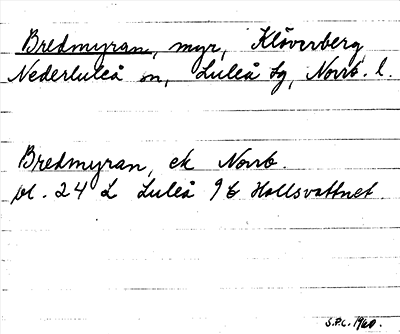 Bredmyran, myr, Klöverberg,
Nederluleå sn, Luleå tg, Norrb. l.
Bredmyran, ek Norrb.
bl. 24 L Luleå 9 b Hallsvattnet.
S.P.L. 1960.